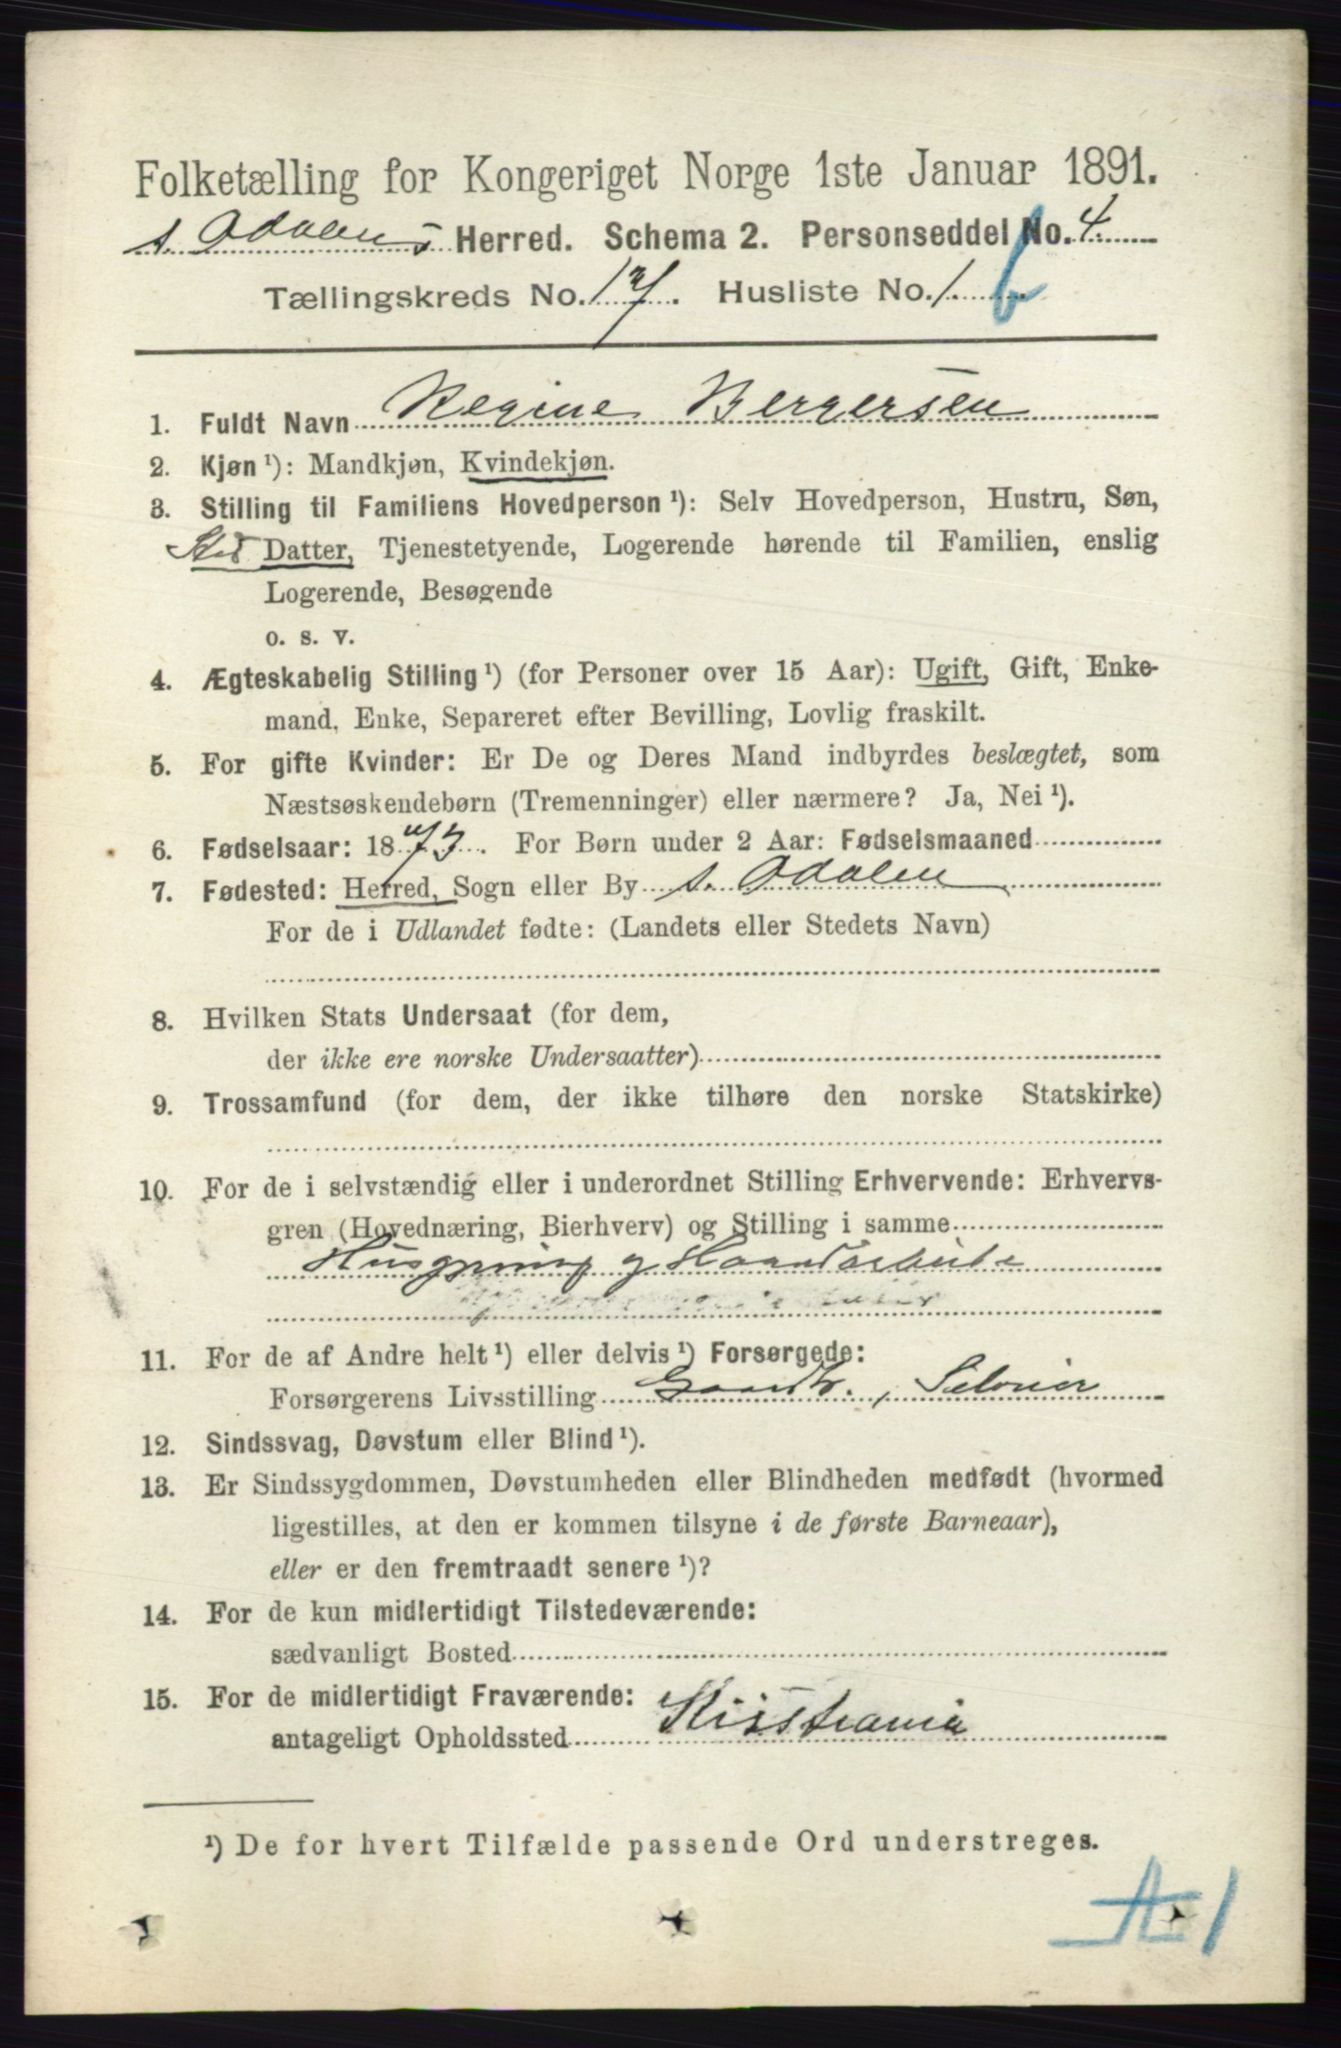 Folketælling for Kongeriget Norge 1ste Januar 1891.
s. Odalens Herred. Schema 2. Personseddel No. 4
Tællingskreds No. 17. Husliste No. 1. b
1. Fuldt Navn Regine Bergersen
2. Kjøn ¹): Mandkjøn, Kvindekjøn.
3. Stilling til Familiens Hovedperson ¹): Selv Hovedperson, Hustru, Søn,
Sted Datter, Tjenestetyende, Logerende hørende til Familien, enslig
Logerende, Besøgende
o. s. v.
4. Ægteskabelig Stilling ¹) (for Personer over 15 Aar): Ugift, Gift, Enke-
mand, Enke, Separeret efter Bevilling, Lovlig fraskilt.
5. For gifte Kvinder: Er De og Deres Mand indbyrdes beslægtet, som
Næstsøskendebørn (Tremenninger) eller nærmere? Ja, Nei ¹).
6. Fødselsaar: 1873. For Børn under 2 Aar: Fødselsmaaned
7. Fødested: Herred, Sogn eller By s. Odalen
For de i Udlandet fødte: (Landets eller Stedets Navn)
8. Hvilken Stats Undersaat (for dem,
der ikke ere norske Undersaatter)
9. Trossamfund (for dem, der ikke tilhøre den norske Statskirke)
10. For de i selvstændig eller i underordnet Stilling Erhvervende: Erhvervs-
gren (Hovednæring, Bierhverv) og Stilling i samme
Husgjerning og Haandarbeide
11. For de af Andre helt ¹) eller delvis ¹) Forsørgede:
Forsørgerens Livsstilling Gaardbr., Selveier
12. Sindssvag, Døvstum eller Blind ¹).
13. Er Sindssygdommen, Døvstumheden eller Blindheden medfødt (hvormed
ligestilles, at den er kommen tilsyne i de første Barneaar),
eller er den fremtraadt senere ¹)?
14. For de kun midlertidigt Tilstedeværende:
sædvanligt Bosted
15. For de midlertidigt Fraværende:
antageligt Opholdssted Kristiania
¹) De for hvert Tilfælde passende Ord understreges.